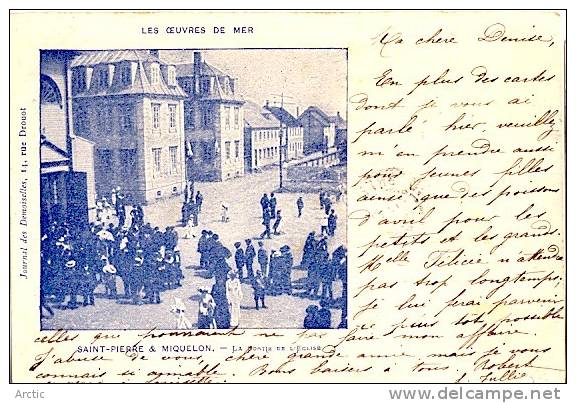 LES ŒUVRES DE MER
Journal des Demoiselles, 14, rue Drouot
Ma chere Denise,
En plus des cartes
dont je vous ai
parlé hier, veuillez
m'en prendre aussi
pour jeunes filles
ainsi que des poissons
d'avril pour les
petits et les grands.
Melle Félicie n'attendra
pas trop longtemps,
je lui ferai parvenir
le plus tôt possible
celles que pourraient faire mon affaire.
J'abuse de vous, chère grande amie, mais je vous
connais si aimable. Bons baisers à tous. Robert
SAINT-PIERRE & MIQUELON. — LA SORTIE DE L'EGLISE
http://www.delcampe.net